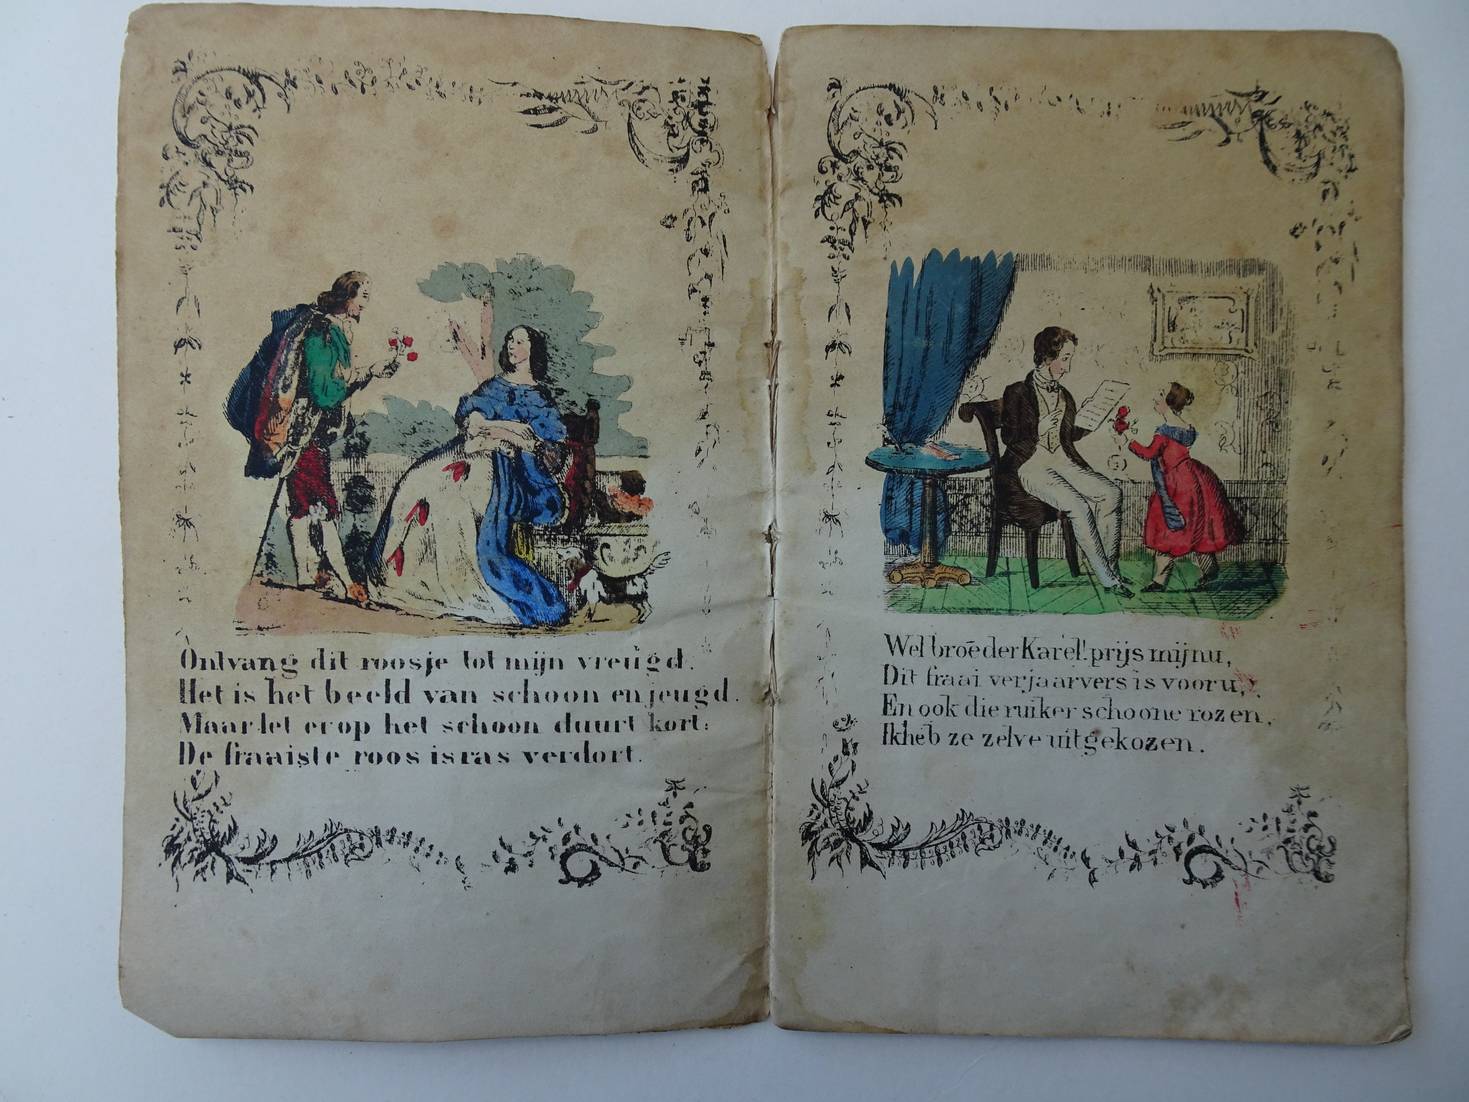 Ontvang dit roosje tot mijn vreugd.
Het is het beeld van schoon en jeugd.
Maar let er op het schoon duurt kort:
De fraaiste roos is ras verdort.
Wel broeder Karel! prijs mij nu,
Dit fraai verjaarvers is voor u,
En ook die ruiker schoone rozen,
Ik heb ze zelve uitgekozen.